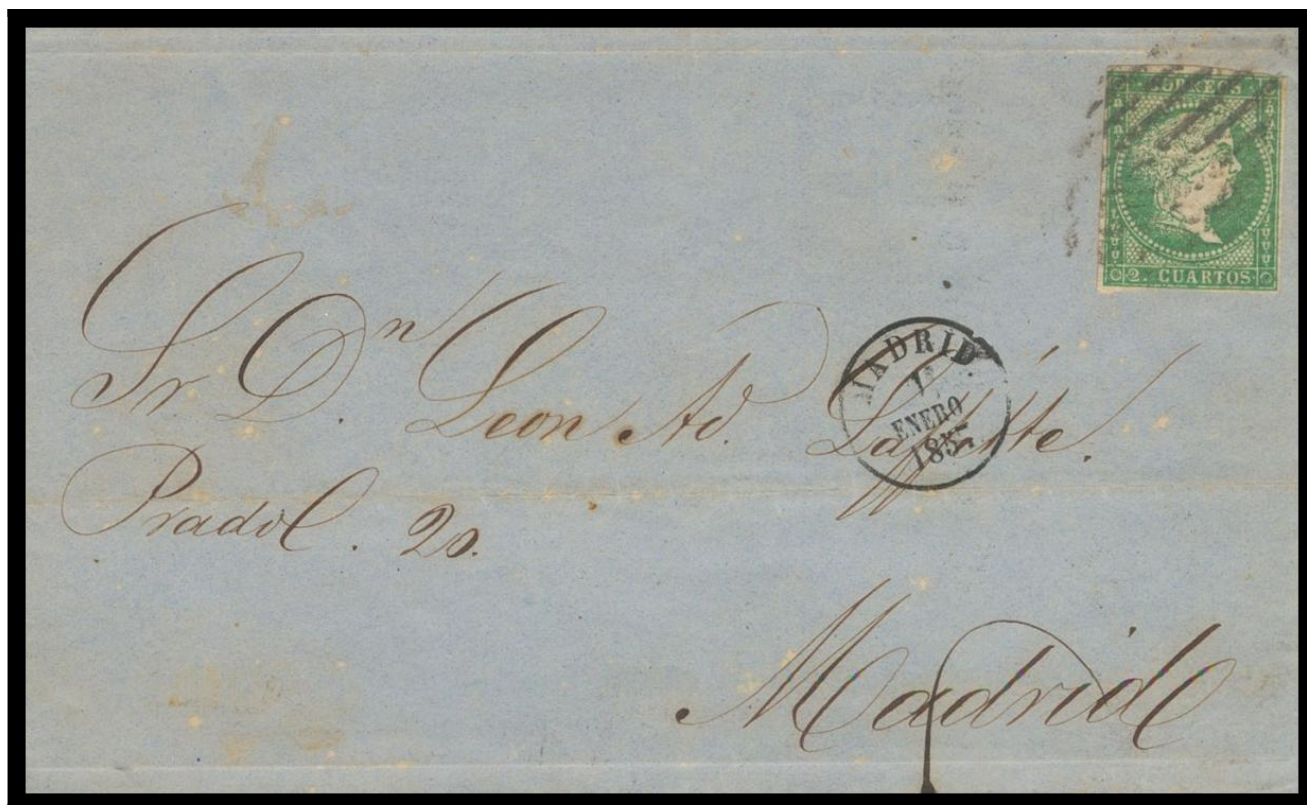 CORREOS
2. CUARTOS
MADRID
1º
ENERO
1857
Sr. Dn. Leon Ad. Laffitte.
Prado. 20.
Madrid